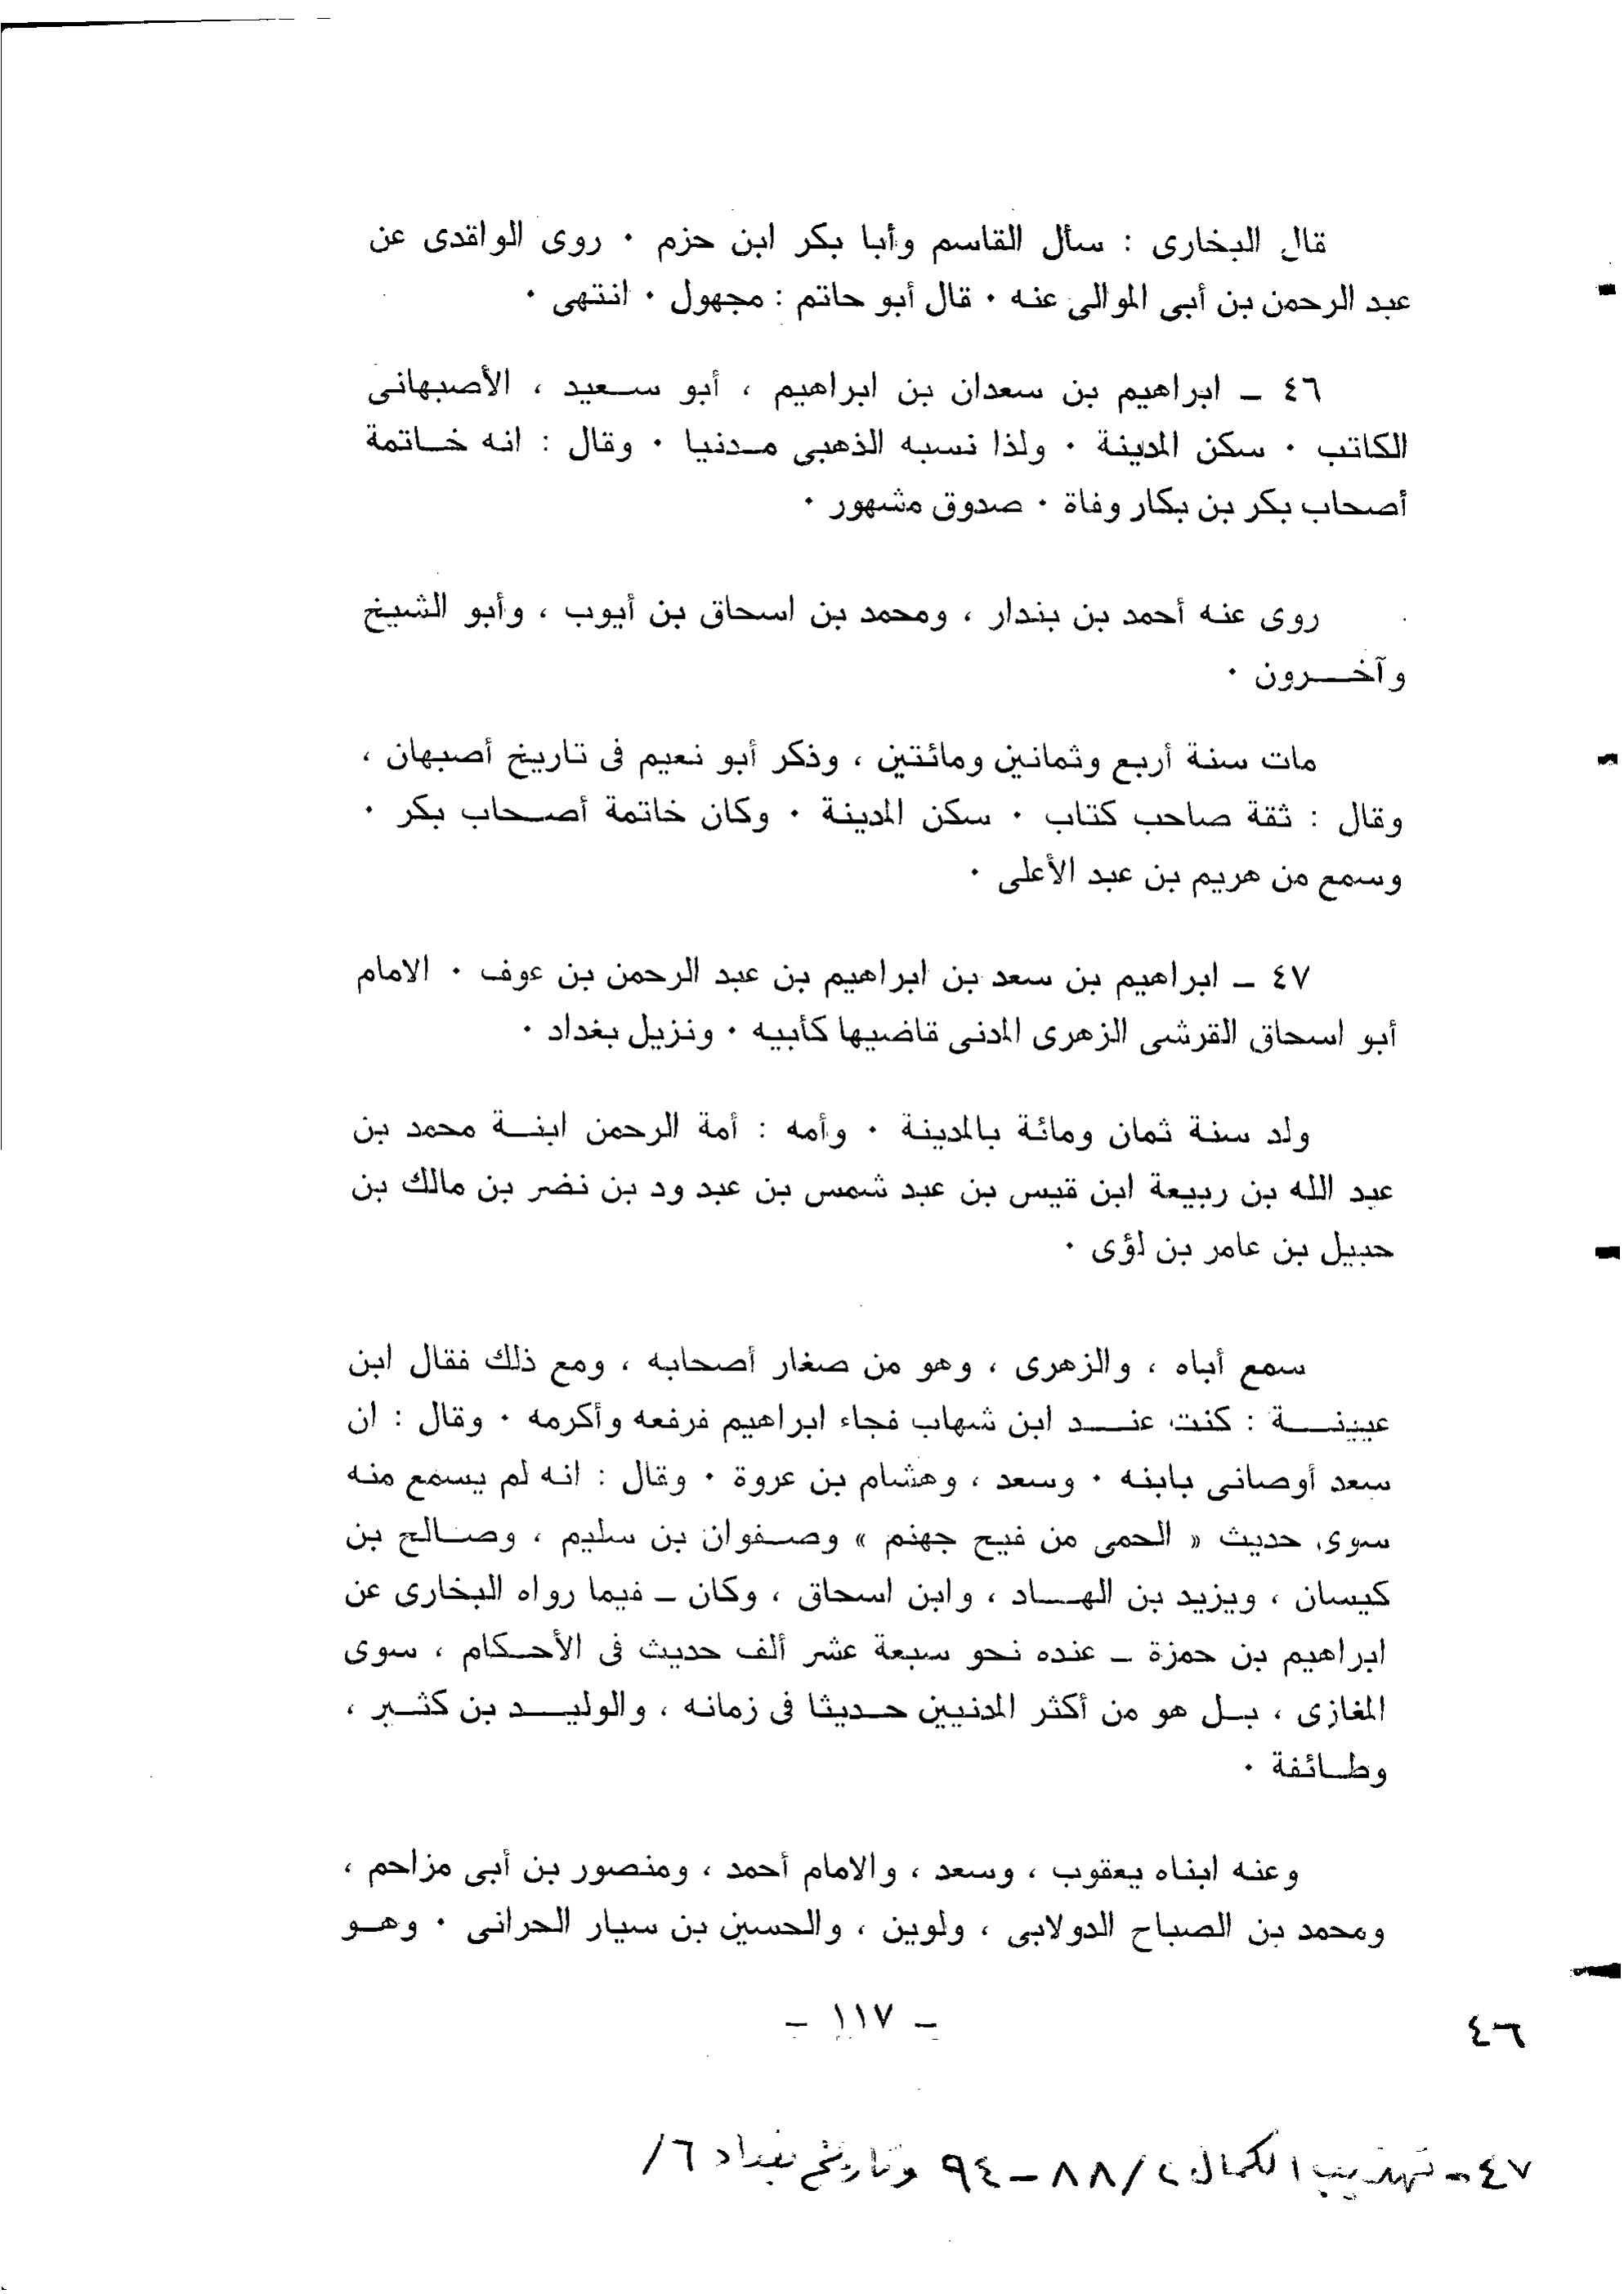 قال البخارى : سأل القاسم وأبا بكر ابن حزم ٠ روى الواقدى عن
عبد الرحمن بن أبى الموالى عنه ٠ قال أبو حاتم : مجهول ٠ انتهى ٠
٤٦ ــ ابراهيم بن سعدان بن ابراهيم ، أبو سـعيد ، الأصبهانى
الكاتب ٠ سكن المدينة ٠ ولذا نسبه الذهبى مـدنيا ٠ وقال : انه خـاتمة
أصحاب بكر بن بكار وفاة ٠ صدوق مشهور ٠
روى عنه أحمد بن بندار ، ومحمد بن اسحاق بن أيوب ، وأبو الشيخ
وآخـرون ٠
مات سنة أربع وثمانين ومائتين ، وذكر أبو نعيم فى تاريخ أصبهان ،
وقال : ثقة صاحب كتاب ٠ سكن المدينة ٠ وكان خاتمة أصـحاب بكر ٠
وسمع من هريم بن عبد الأعلى ٠
٤٧ ــ ابراهيم بن سعد بن ابراهيم بن عبد الرحمن بن عوف ٠ الامام
أبو اسحاق القرشى الزهرى المدنى قاضيها كأبيه ٠ ونزيل بغداد ٠
ولد سنة ثمان ومائة بالمدينة ٠ وأمه : أمة الرحمن ابنـة محمد بن
عبد الله بن ربيعة ابن قيس بن عبد شمس بن عبد ود بن نضر بن مالك بن
حبيل بن عامر بن لؤى ٠
سمع أباه ، والزهرى ، وهو من صغار أصحابه ، ومع ذلك فقال ابن
عيينـة : كنت عنـد ابن شهاب فجاء ابراهيم فرفعه وأكرمه ٠ وقال : ان
سعد أوصانى بابنه ٠ وسعد ، وهشام بن عروة ٠ وقال : انه لم يسمع منه
سوى حديث « الحمى من فيح جهنم » وصـفوان بن سليم ، وصـالح بن
كيسان ، ويزيد بن الهـاد ، وابن اسحاق ، وكان ــ فيما رواه البخارى عن
ابراهيم بن حمزة ــ عنده نحو سبعة عشر ألف حديث فى الأحـكام ، سوى
المغازى ، بـل هو من أكثر المدنيين حـديثا فى زمانه ، والوليـد بن كثـير ،
وطـائفة ٠
وعنه ابناه يعقوب ، وسعد ، والامام أحمد ، ومنصور بن أبى مزاحم ،
ومحمد بن الصباح الدولابى ، ولوين ، والحسين بن سيار الحرانى ٠ وهـو
ــ ١١٧ ــ
٤٦
٤٧ـ تهذيب الكمال ٢/ ٨٨ – ٩٤ وتاريخ بغداد ٦/